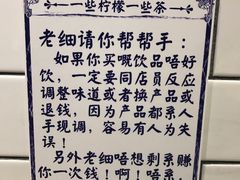 一些柠檬一些茶
老细请你帮帮手：
如果你买嘅饮品唔好
饮，一定要同店员反应
调整味道或者换产品或
退钱，因为产品都系人
手现调，容易有人为失
误！
另外老细唔想剩系赚
你一次钱！啊！唔系，